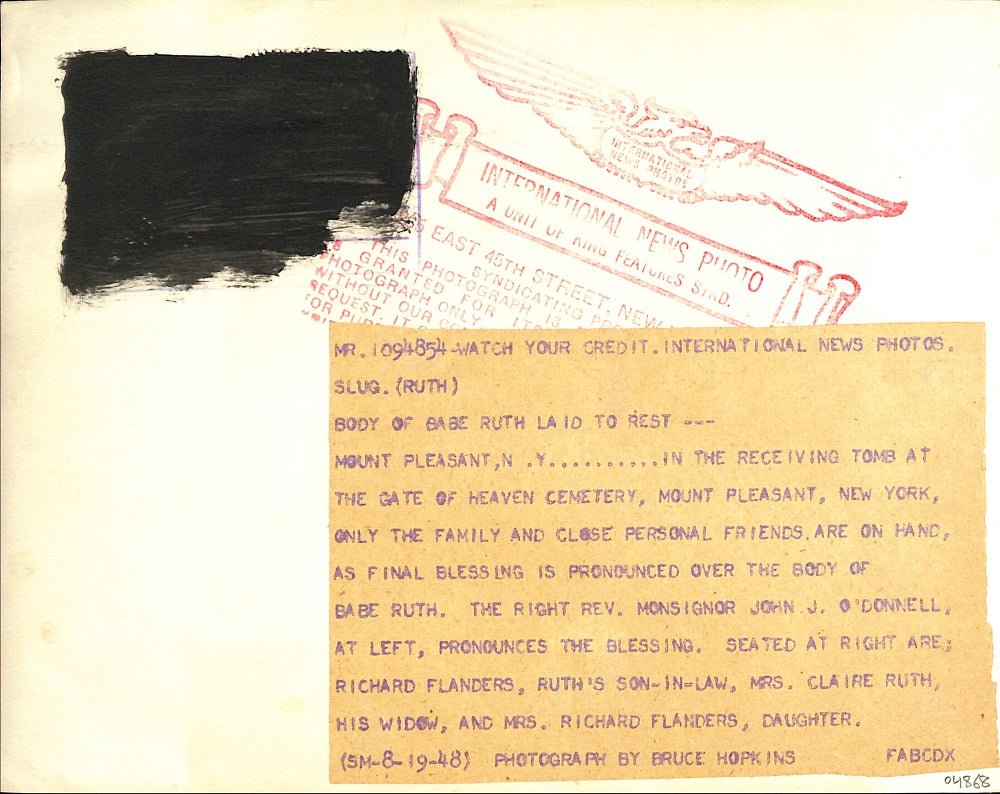 INTERNATIONAL
NEWS PHOTOS
INTERNATIONAL NEWS PHOTO
A UNIT OF KING FEATURES SYND.
EAST 45TH STREET, NEW
THIS PHOTOGRAPH IS
GRANTED FOR
SYNDICATING
PHOTOGRAPH ONLY.
WITHOUT OUR
REQUEST. IT
FOR
MR.1094854-WATCH YOUR CREDIT.INTERNATIONAL NEWS PHOTOS.
SLUG.(RUTH)
BODY OF BABE RUTH LAID TO REST ---
MOUNT PLEASANT,N .Y...........IN THE RECEIVING TOMB AT
THE GATE OF HEAVEN CEMETERY, MOUNT PLEASANT, NEW YORK,
ONLY THE FAMILY AND CLOSE PERSONAL FRIENDS.ARE ON HAND,
AS FINAL BLESSING IS PRONOUNCED OVER THE BODY OF
BABE RUTH. THE RIGHT REV. MONSIGNOR JOHN J. O'DONNELL,
AT LEFT, PRONOUNCES THE BLESSING. SEATED AT RIGHT ARE;
RICHARD FLANDERS, RUTH'S SON-IN-LAW, MRS. CLAIRE RUTH,
HIS WIDOW, AND MRS. RICHARD FLANDERS, DAUGHTER.
(SM-8-19-48) PHOTOGRAPH BY BRUCE HOPKINS FABCDX
04868